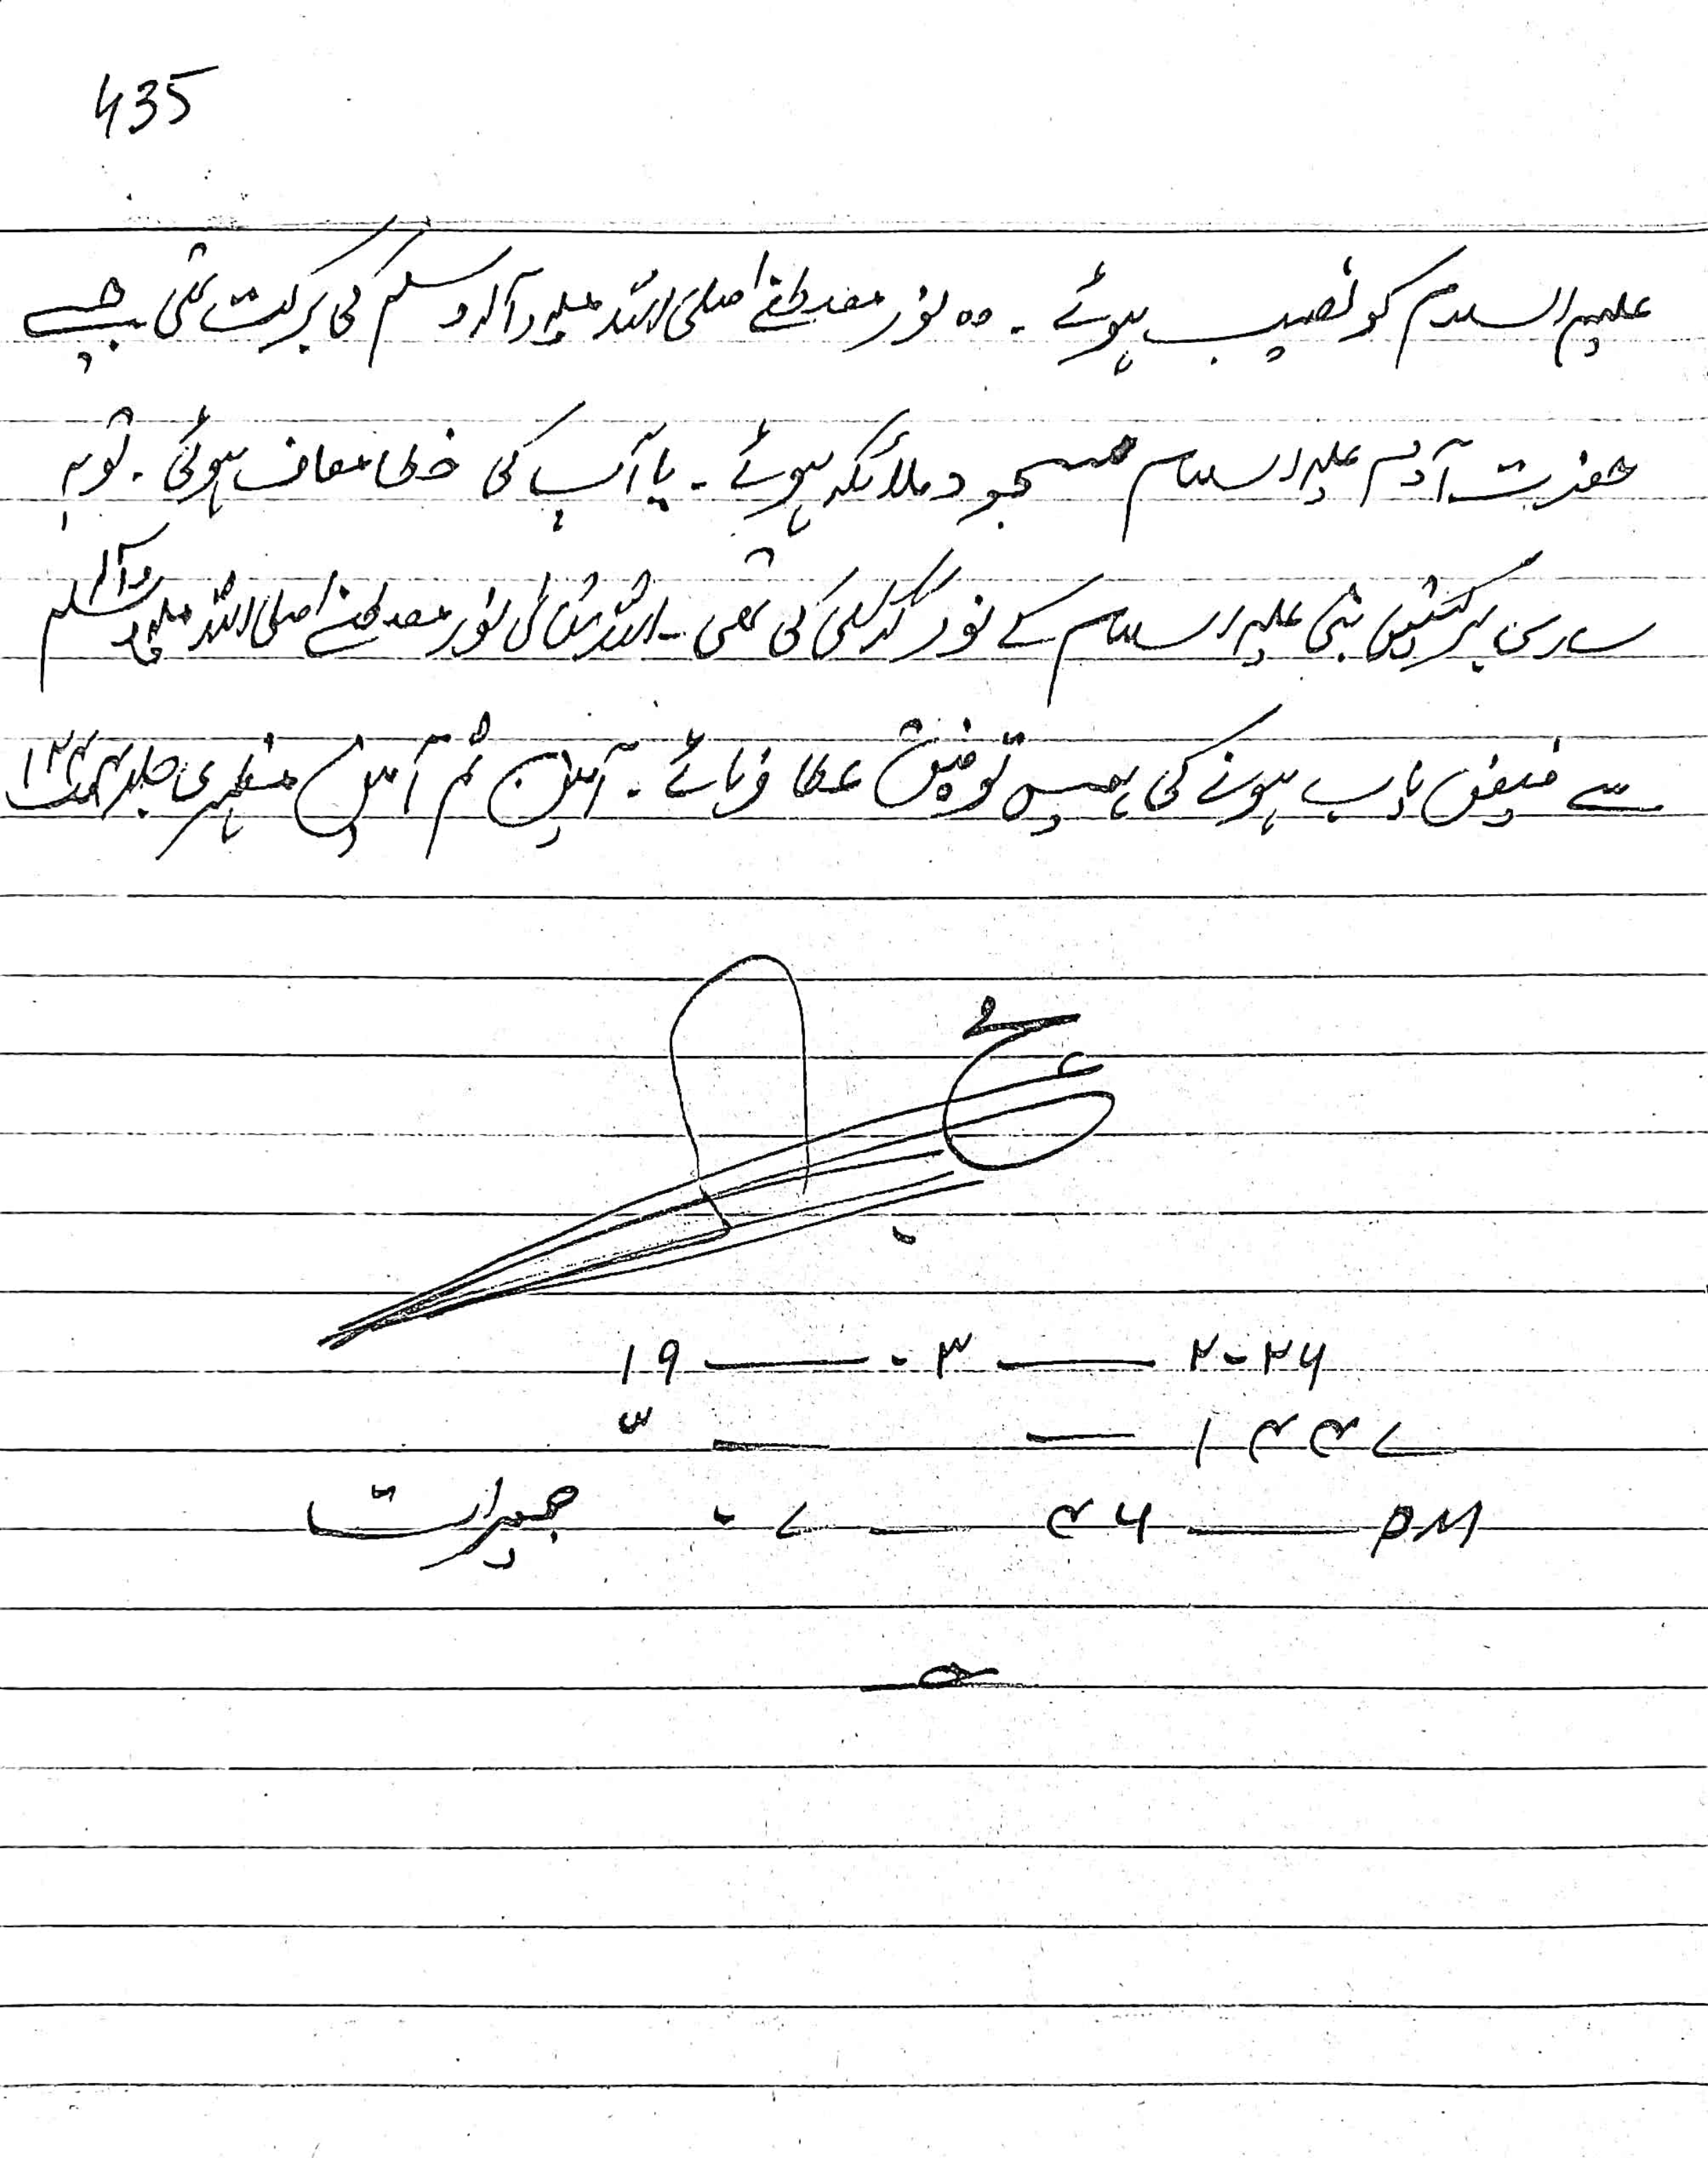 435
علیہم السلام کو نصیب ہوئے ۔ وہ نور مصطفےٰ صلی اللہ علیہ وآلہ وسلم کی برکت تھی جیسے
حضرت آدم علیہ السلام مسجود ملائکہ ہوئے ۔ یا آپ کی خطا معاف ہوگی ۔ تو یہ
ساری برکتیں نبی علیہ السلام کے نور کی تھی ۔ اللہ تعالیٰ نور مصطفےٰ صلی اللہ علیہ وآلہ وسلم
سے فیض یاب ہونے کی ہمیں توفیق عطا فرمائے ۔ آمین ثم آمین مظہری جلد
۱۹ — ۰۳ — ۲۰۲۶
۱۴۴۷
جمعرات ۰۷ — ۴۶ — PM